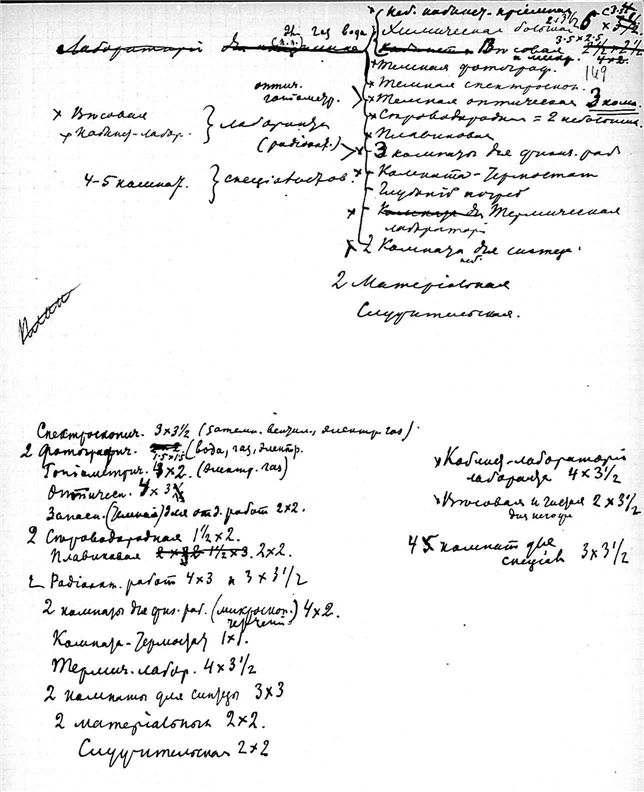 Лабораторіи
эл. газ вода
Химическая большая 6
Вѣсовая
4×2.
149
Темная фотограф.
Темная спектроскоп.
Темная оптическая 3 комн.
Сѣроводородная = 2 небольш.
Плавиковая
3 комнаты для физич. раб.
Комната-Термостат
Глубокій погреб
Термическая
лабораторія
2 Комнаты для
2 Матеріальная
Служительская.
оптич.
гоніометр.
× Вѣсовая
× Кабинет-лабор.
лаборанта
(радіоакт.)
4-5 комнат.
спеціалистов
План
Спектроскопич. 3×3½ (затемн. вентил., электр. газ)
2 Фотографич. (вода, газ, электр.
1.5×1.5
Гоніометрич. 3×2. (электр. газ)
Оптическ. 4×3
Запасн. (темная) для отд. работ 2×2.
2 Сѣроводородная 1½×2.
Плавиковая 2×2.
2 Радіоакт. работ 4×3 и 3×3½
2 комнаты для физ. раб. (микроскоп. 4×2.
Комната-Термостат 1×1.
Термич. лабор. 4×3½
2 комнаты для синтеза 3×3
2 матеріальныя 2×2.
Служительская 2×2
× Кабинет-лабораторія
лаборанта 4×3½
× Вѣсовая и 2×3½
для него
4 5 комнат для
спеціал. 3×3½